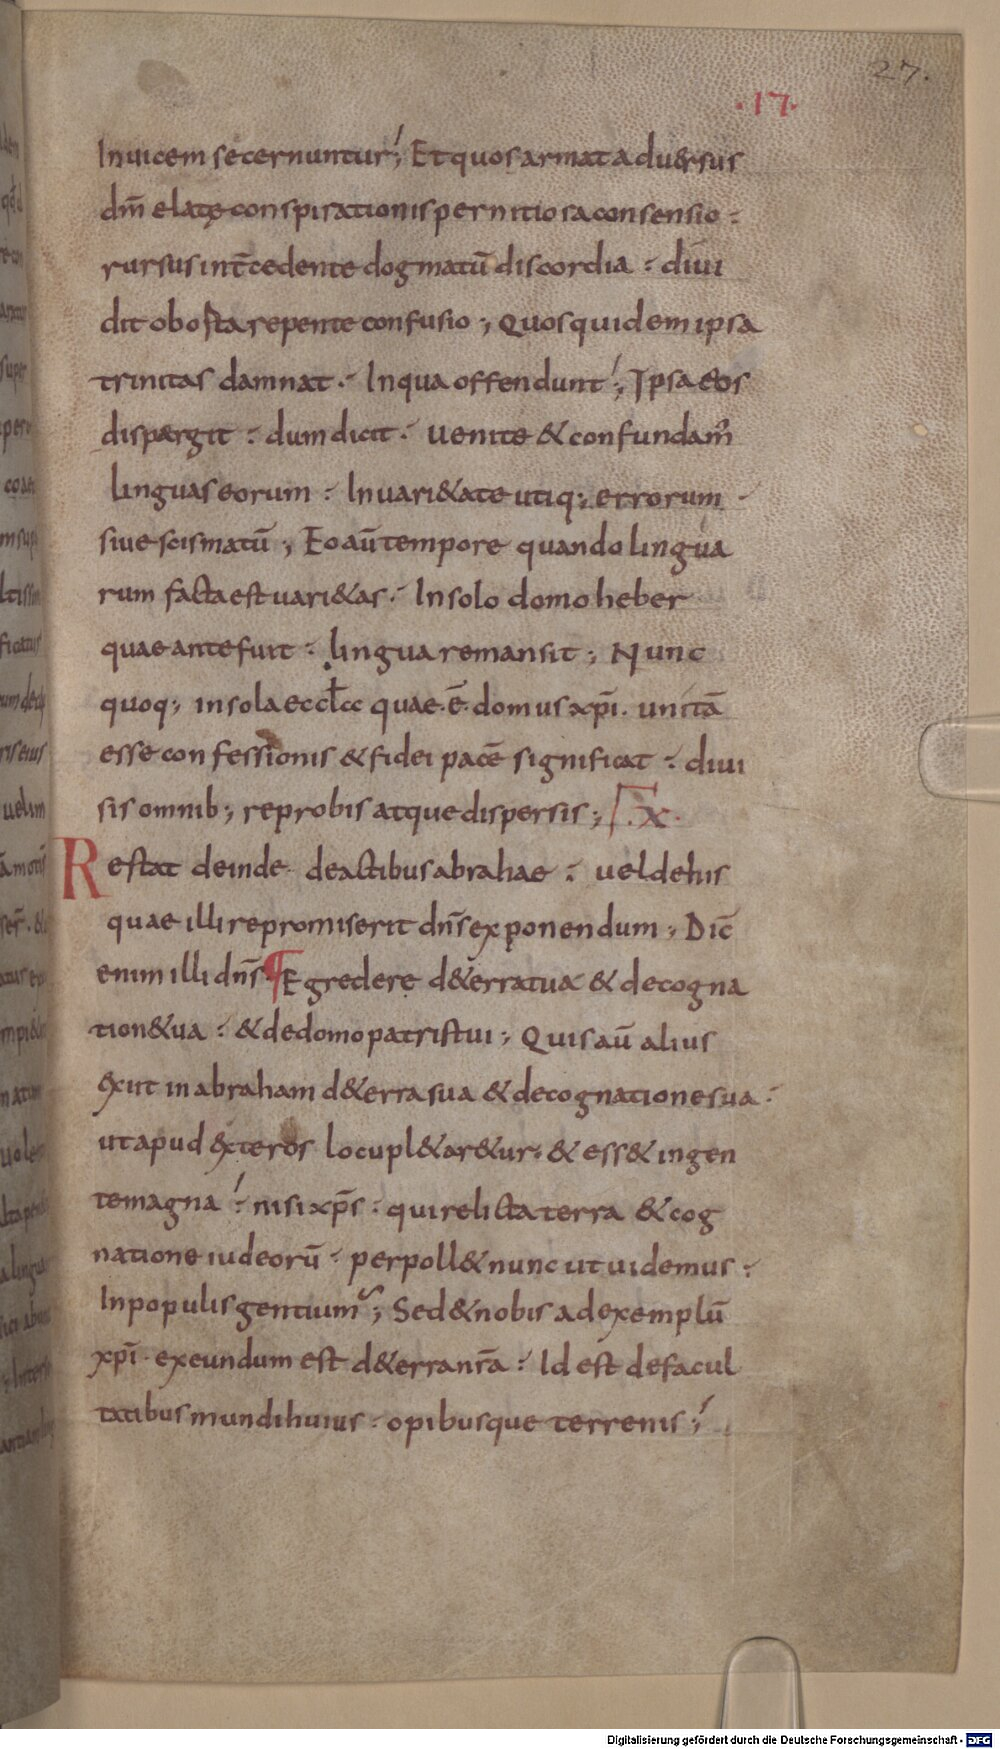 27.
·17·
Inuicem secernuntur; Et quos armat aduersus
dm̄ elatę conspirationis pernitiosa consensio :
rursus int̄cedente dogmatū discordia : diui
dit obosta repente confusio ; Quos quidem ipsa
trinitas damnat. Inqua offendunt ; Ipsa eos
dispergit : dum dicit. uenite & confundam̄
linguas eorum : In uari&ate utiq; errorum
siue scismatū ; Eo aū tempore quando lingua
rum facta est uari&as. In solo domo heber
quae ante fuit : lingua remansit ; Nunc
quoq; in sola eccl̄ quae .ē. domus xp̄i. unitā
esse confessionis & fidei pacē significat : diui
sis omnib; reprobis atque dispersis ; x.
Restat deinde de actibus abrahae : uel de his
quae illi repromiserit dn̄s exponendum ; Dic̄
enim illi dn̄s. Egredere d&erra tua & de cogna
tion&ua : & de domo patris tui ; Quis aū alius
exiit in abraham d&erra sua & de cognatione sua.
ut apud exteros locupl&ar&ur. & ess& in gen
te magna : nisi xp̄s : qui relicta terra & cog
natione iudeorū : perpoll& nunc ut uidemus :
In populis gentium ; Sed & nobis ad exemplū
xp̄i. exeundum est d&erra nr̄a : Id est de facul
tatibus mundi huius : opibusque terrenis ;
Digitalisierung gefördert durch die Deutsche Forschungsgemeinschaft - DFG